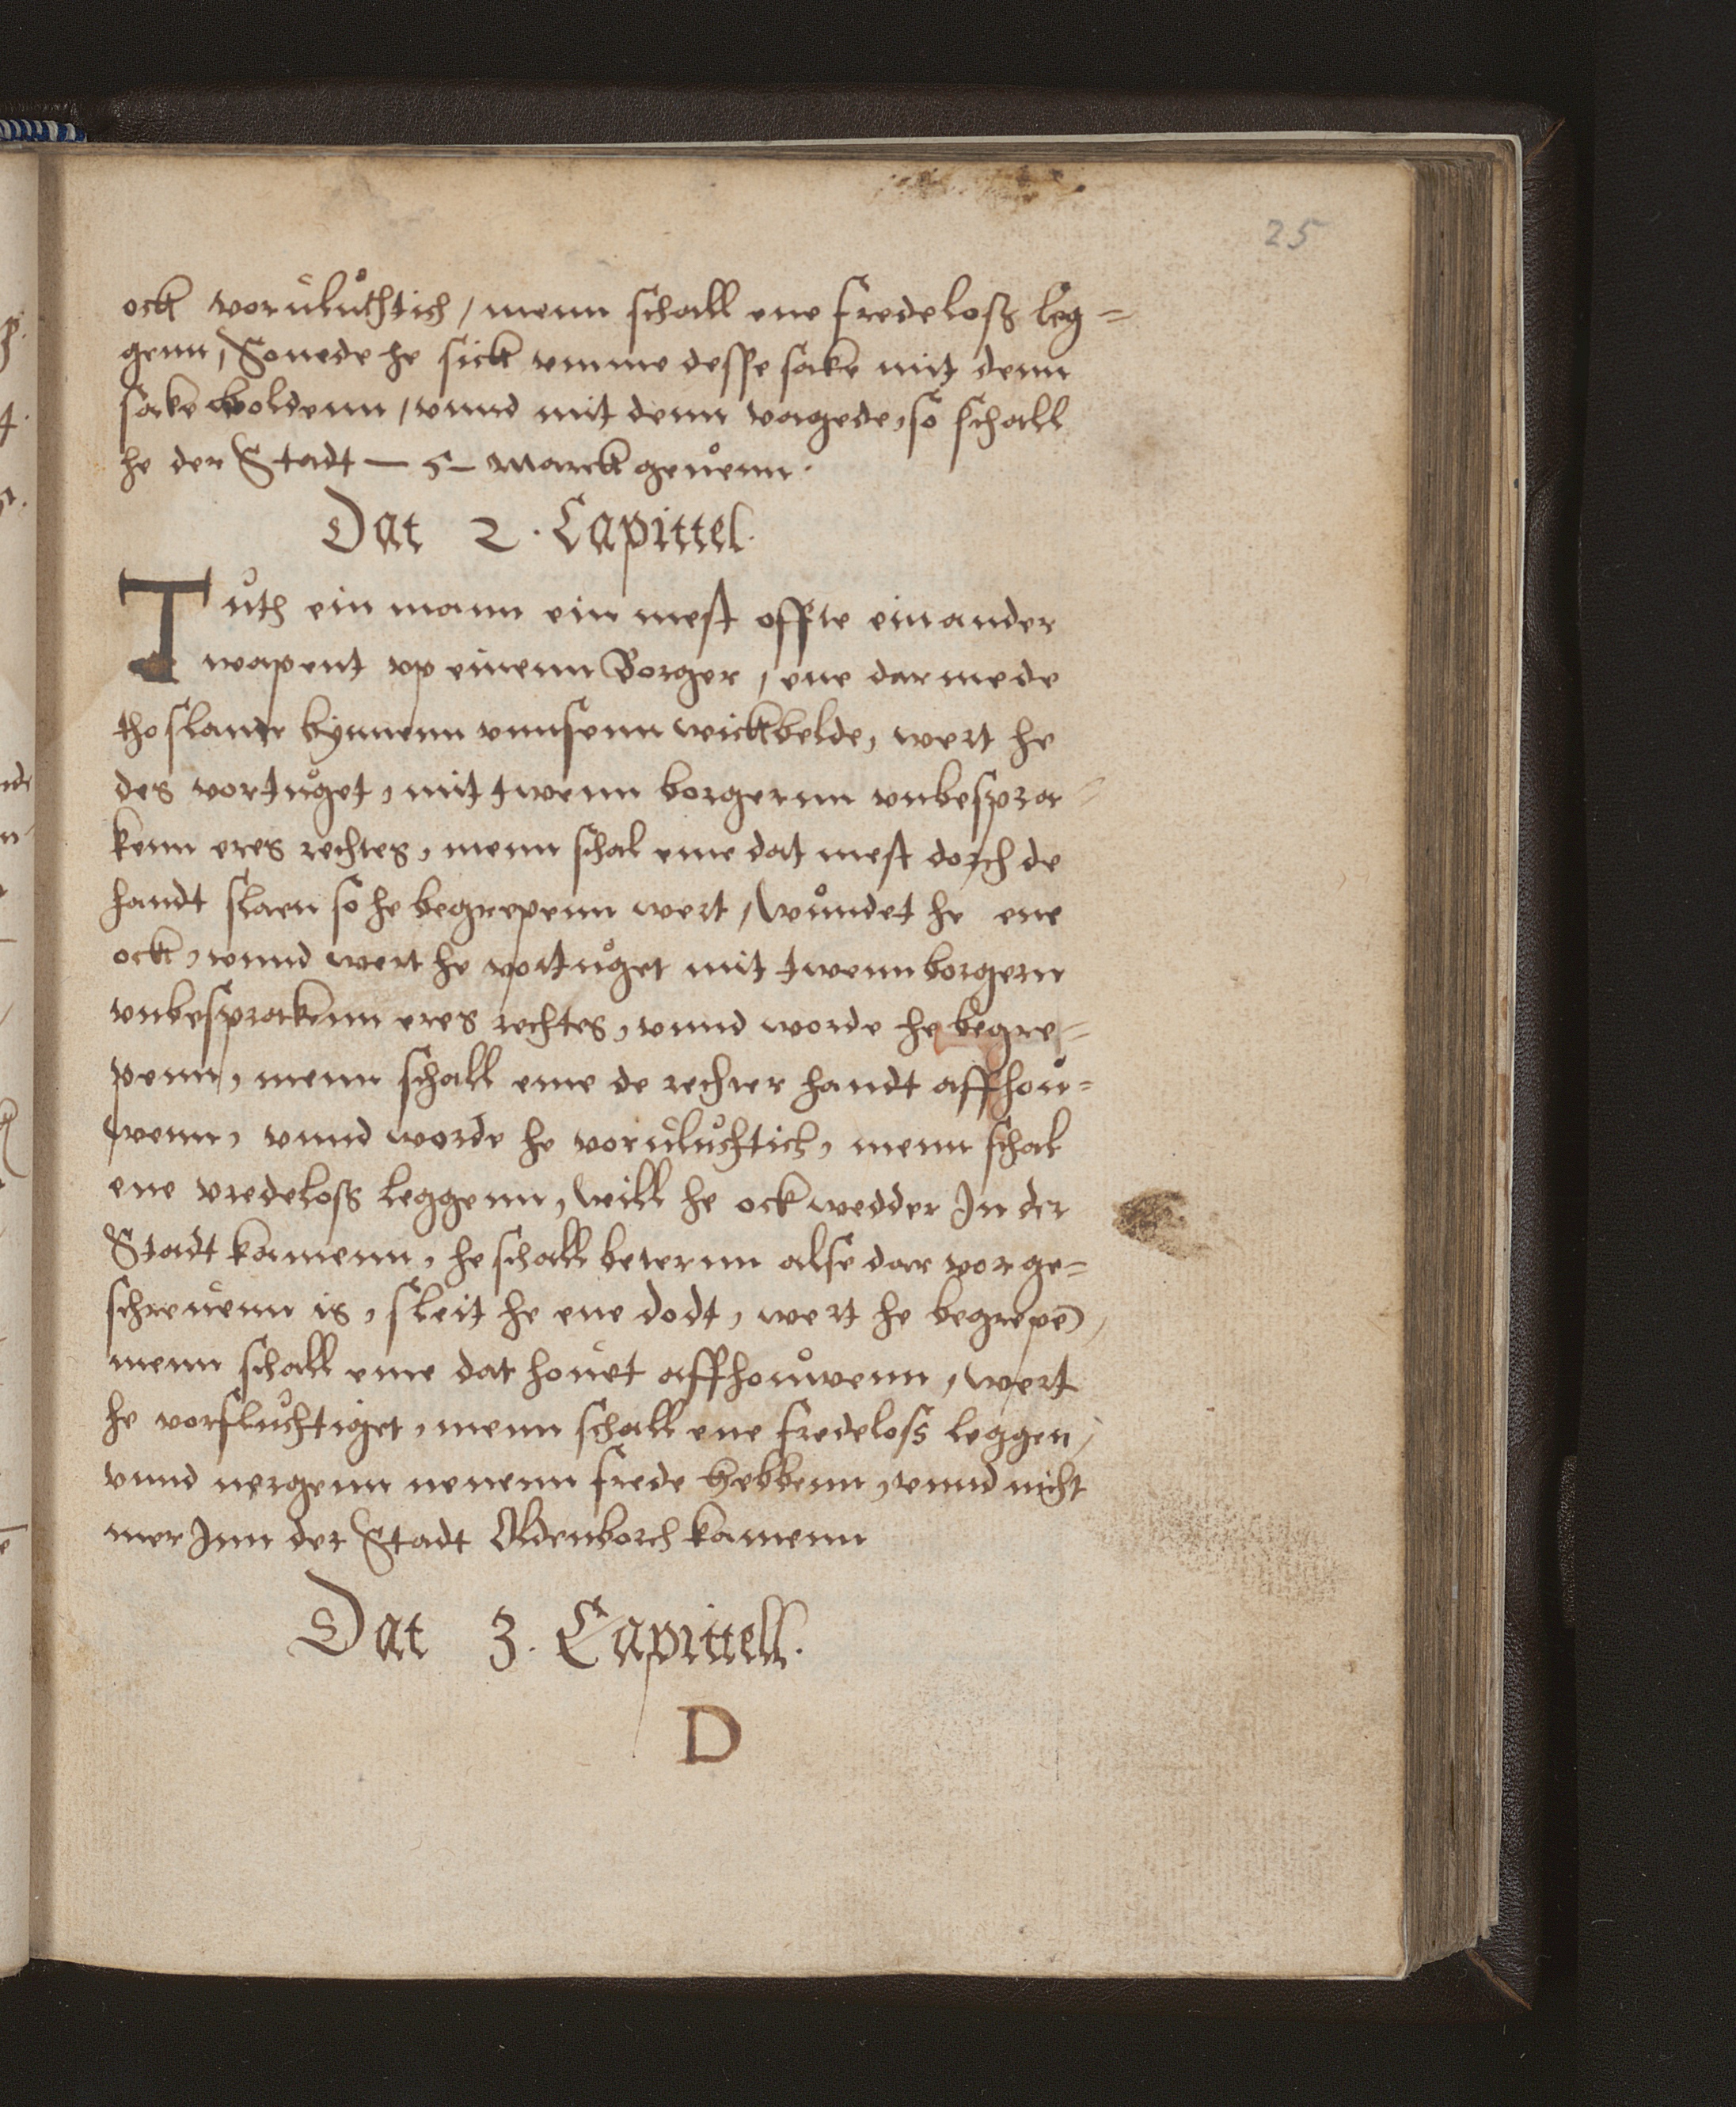 25
ock vorulůchtich / menn schall ene fredeloß leg=
genn, Sonede he sick vmme desse sake mit denn
sakewoldenn / vnnd mit denn vagede, so schall
he der Stadt — 5 — Marck geuenn.
Dat 2. Capittel.
Tůth ein mann ein mest offte ein ander
wapent vp einenn Borger, ene darmede
tho slande bynnenn vnnsenn wickbelde, wert he
des vortůget, mit twenn borgernn vnbespra-
kenn eres rechtes, menn schal eme dat mest dorch de
handt slaen so he begrepenn wert, Wůndet he ene
ock, vnnd wert he vortůget mit twenn borgern
vnbesprakenn eres rechtes, vnnd worde he begre-
penn, menn schall eme de rechter handt affhou=
wenn, vnnd worde he vorulůchtich, menn schal
ene vredeloß leggenn, Will he ock wedder In der
Stadt kamenn, he schall beternn alse dar vorge=
schreuenn is, Sleit he ene dodt, wert he begrepē,
menn schall eme dat houet affhouwenn, wert
he vorflůchtiget, menn schall ene fredeloß leggen,
vnnd nergenn nenenn frede hebbenn, vnnd nicht
mer Inn der Stadt Oldenborch kamenn
Dat 3. Capittell.
D